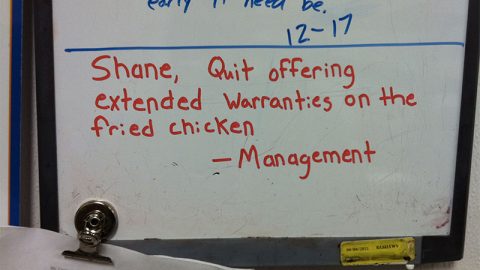 early if need be.
12-17
Shane, Quit offering
extended Warranties on the
fried chicken
— Management